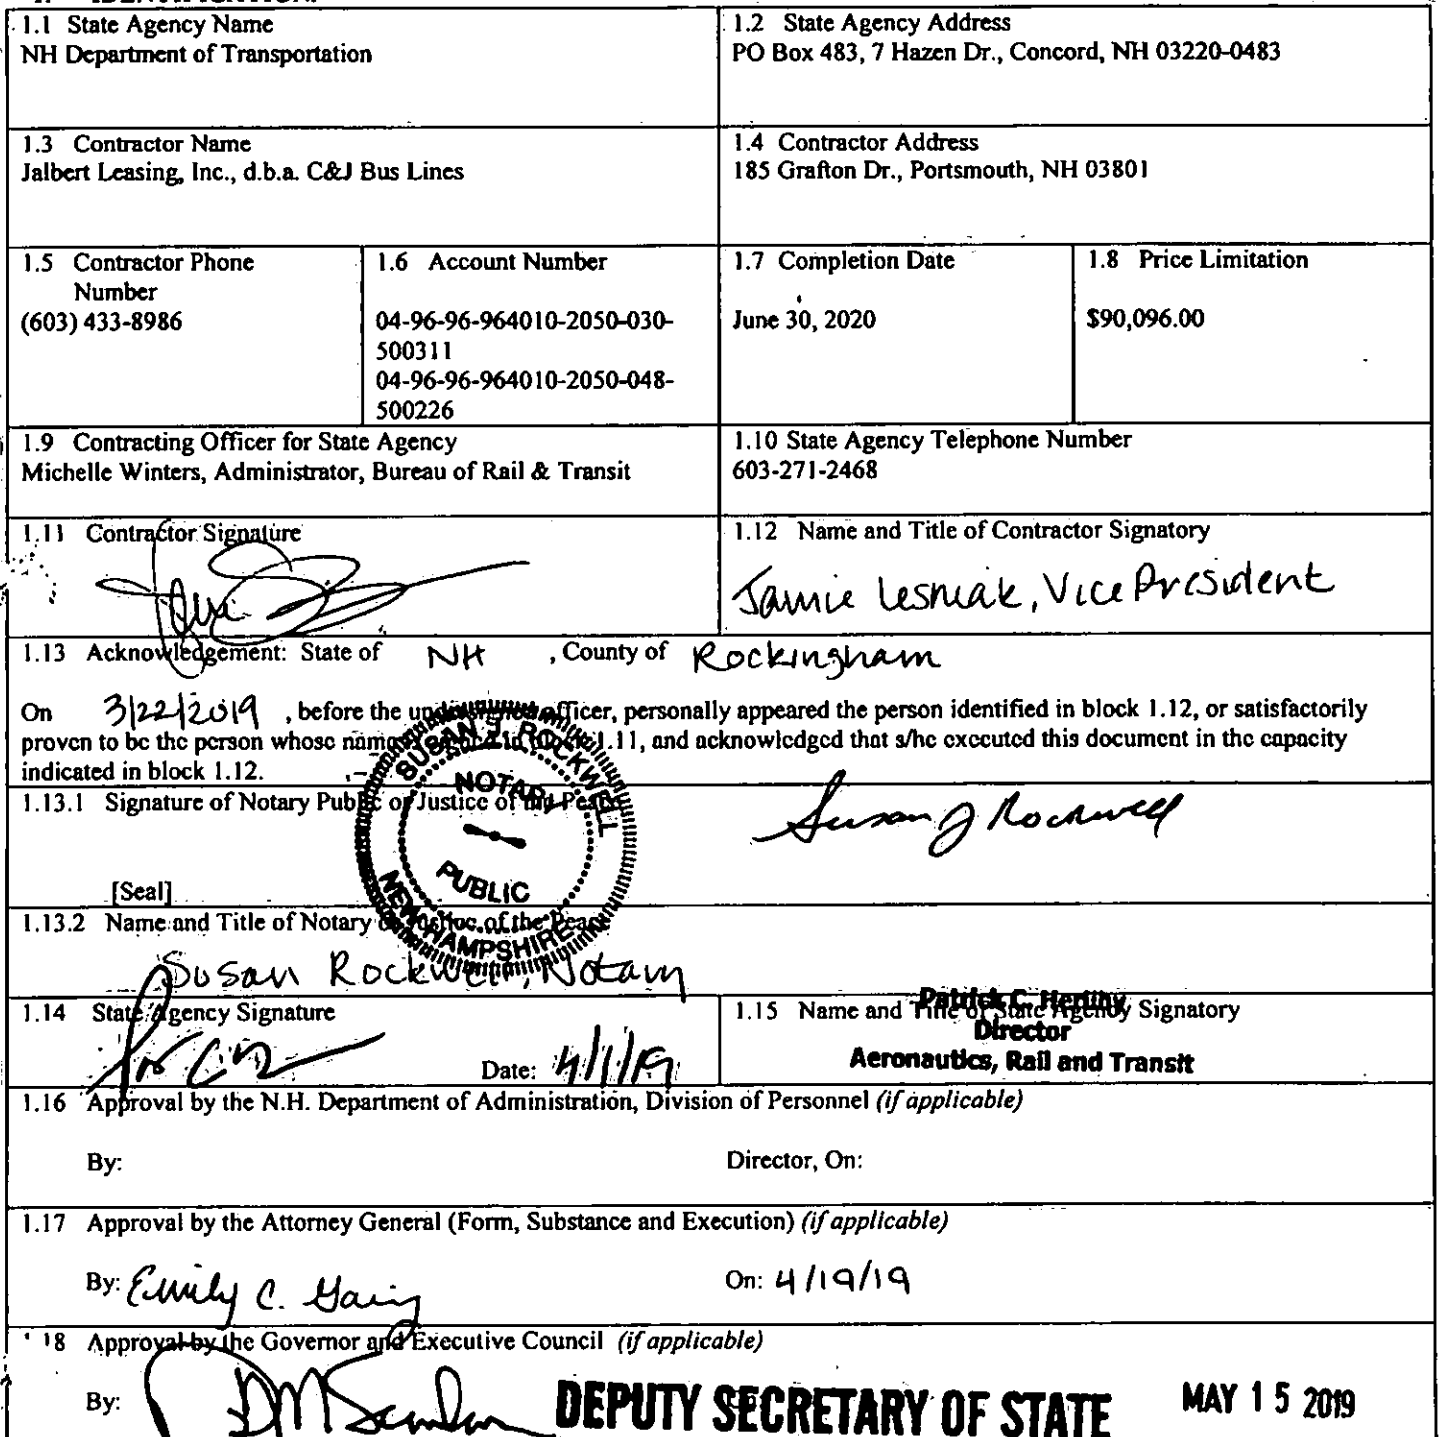 1.1 State Agency Name
NH Department of Transportation
1.2 State Agency Address
PO Box 483, 7 Hazen Dr., Concord, NH 03220-0483
1.3 Contractor Name
Jalbert Leasing, Inc., d.b.a. C&J Bus Lines
1.4 Contractor Address
185 Grafton Dr., Portsmouth, NH 03801
1.5 Contractor Phone
Number
(603) 433-8986
1.6 Account Number
04-96-96-964010-2050-030-
500311
04-96-96-964010-2050-048-
500226
1.7 Completion Date
June 30, 2020
1.8 Price Limitation
$90,096.00
1.9 Contracting Officer for State Agency
Michelle Winters, Administrator, Bureau of Rail & Transit
1.10 State Agency Telephone Number
603-271-2468
1.11 Contractor Signature
1.12 Name and Title of Contractor Signatory
Jamie Lesniak, Vice President
1.13 Acknowledgement: State of NH , County of Rockingham
On 3/22/2019 , before the undersigned officer, personally appeared the person identified in block 1.12, or satisfactorily
proven to be the person whose name 1.11, and acknowledged that s/he executed this document in the capacity
indicated in block 1.12.
SUSAN J. ROCKWELL
NOTARY
PUBLIC
NEW HAMPSHIRE
1.13.1 Signature of Notary Public or Justice of the Peace
Susan J Rockwell
[Seal]
1.13.2 Name and Title of Notary or Justice of the Peace
Susan Rockwell, Notary
1.14 State Agency Signature
Date: 4/1/19
1.15 Name and Title of State Agency Signatory
Patrick C. Herlihy
Director
Aeronautics, Rail and Transit
1.16 Approval by the N.H. Department of Administration, Division of Personnel (if applicable)
By: Director, On:
1.17 Approval by the Attorney General (Form, Substance and Execution) (if applicable)
By: Emily C. On: 4/19/19
18 Approval by the Governor and Executive Council (if applicable)
By: DEPUTY SECRETARY OF STATE MAY 15 2019